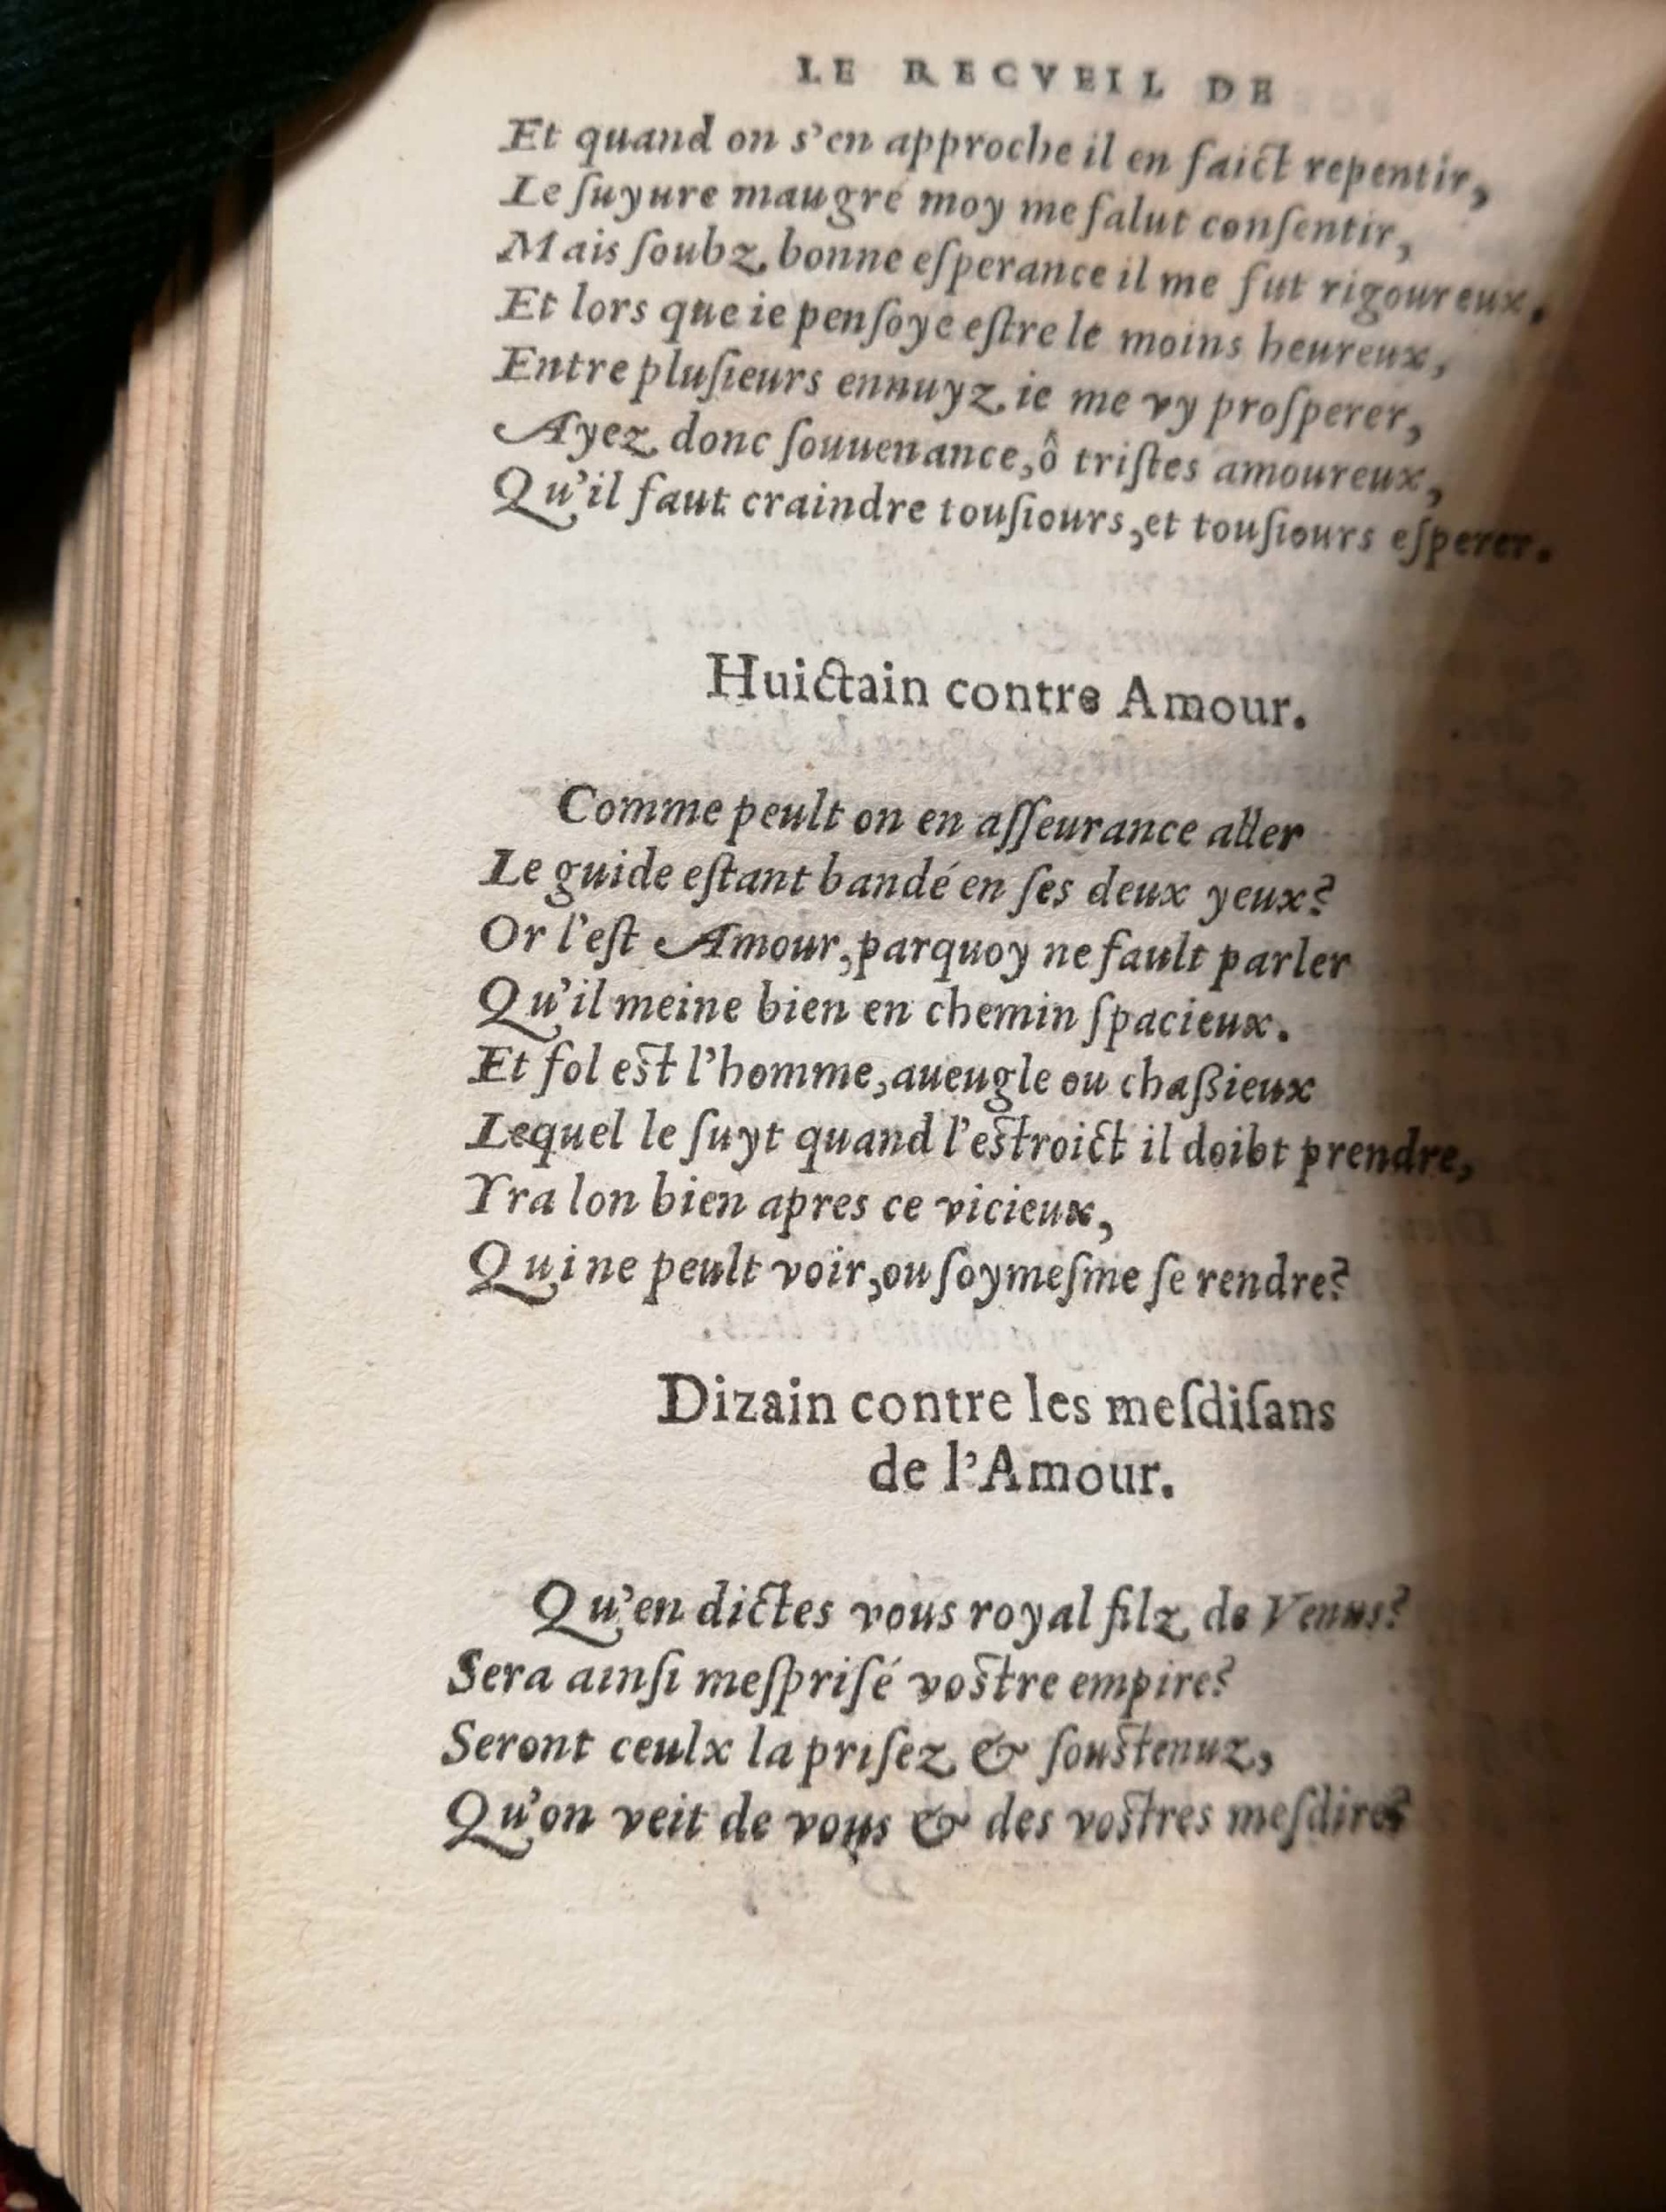 LE RECVEIL DE
Et quand on s'en approche il en faict repentir,
Le ſuyure maugré moy me falut conſentir,
Mais ſoubz bonne eſperance il me fut rigoureux.
Et lors que ie penſoye eſtre le moins heureux,
Entre pluſieurs ennuyz ie me vy proſperer,
Ayez donc ſouuenance, ô triſtes amoureux,
Qu'il faut craindre touſiours, et touſiours eſperer.
Huictain contre Amour.
Comme peult on en aſſeurance aller
Le guide eſtant bandé en ſes deux yeux?
Or l'eſt Amour, parquoy ne fault parler
Qu'il meine bien en chemin ſpacieux.
Et fol eſt l'homme, aueugle ou chaßieux
Lequel le ſuyt quand l'eſtroict il doibt prendre,
Yra lon bien apres ce vicieux,
Qui ne peult voir, ou ſoymeſme ſe rendre?
Dizain contre les meſdiſans
de l'Amour.
Qu'en dictes vous royal filz de Venus?
Sera ainſi meſpriſé voſtre empire?
Seront ceulx la priſez & ſouſtenuz,
Qu'on veit de vous & des voſtres meſdire?